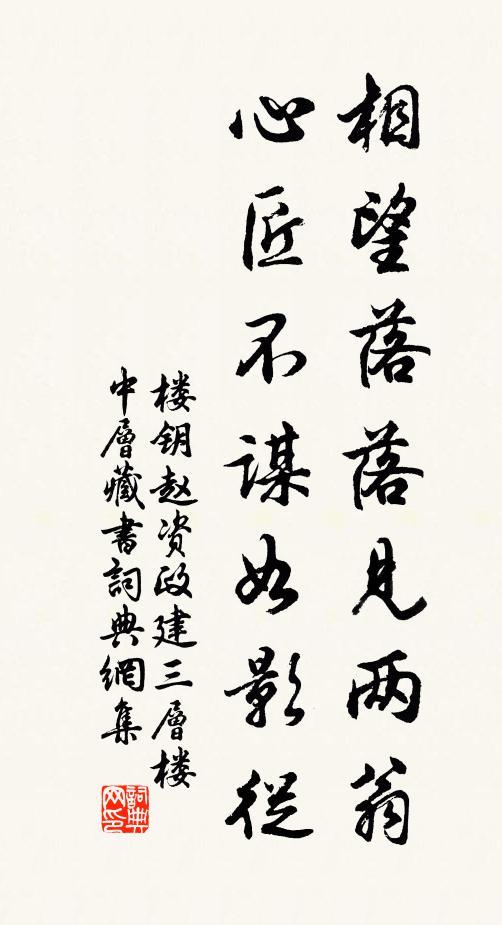 相望落落見两翁
心匠不謀如影從
楼钥赵资政建三層楼
中層藏書詞典網集
詞典网印